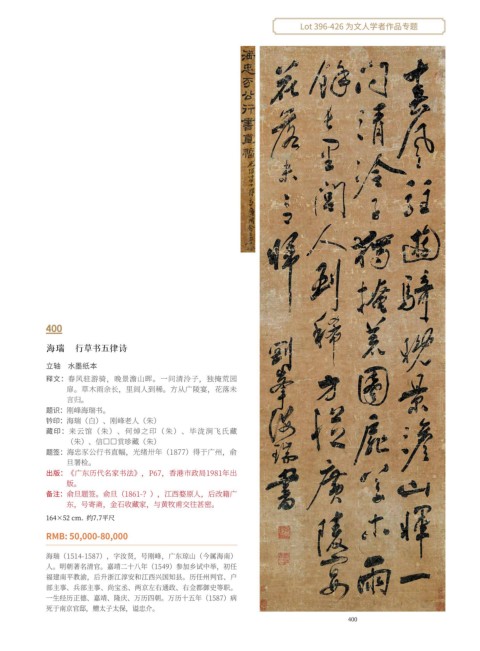 Lot 396-426 为文人学者作品专题
400
海瑞 行草书五律诗
立轴 水墨纸本
释文：春风驻游骑，晚景澹山晖。一问清泠子，独掩荒园
扉。草木雨余长，里闾人到稀。方从广陵宴，花落未
言归。
题识：刚峰海瑞书。
钤印：海瑞（白）、刚峰老人（朱）
藏印：来云馆（朱）、何焯之印（朱）、华泷涧飞氏藏
（朱）、信□□赏珍藏（朱）
题签：海忠介公行书直幅，光绪卅年（1877）得于广州，俞
旦署检。
出版：《广东历代名家书法》，P67，香港市政局1981年出
版。
备注：俞旦题签。俞旦（1861-？），江西婺源人，后改籍广
东，号寄斋，金石收藏家，与黄牧甫交往甚密。
164×52 cm. 约7.7平尺
RMB: 50,000-80,000
海瑞（1514-1587），字汝贤，号刚峰，广东琼山（今属海南）
人。明朝著名清官。嘉靖二十八年（1549）参加乡试中举，初任
福建南平教谕，后升浙江淳安和江西兴国知县。历任州判官、户
部主事、兵部主事、尚宝丞、两京左右通政、右佥都御史等职。
一生经历正德、嘉靖、隆庆、万历四朝。万历十五年（1587）病
死于南京官邸，赠太子太保，谥忠介。
海忠介公行書直幅
春風駐遊騎晚景澹山暉一
問清泠子獨掩荒園扉草木雨
餘長里閭人到稀方從廣陵宴
花落未言歸
剛峯海瑞書
400